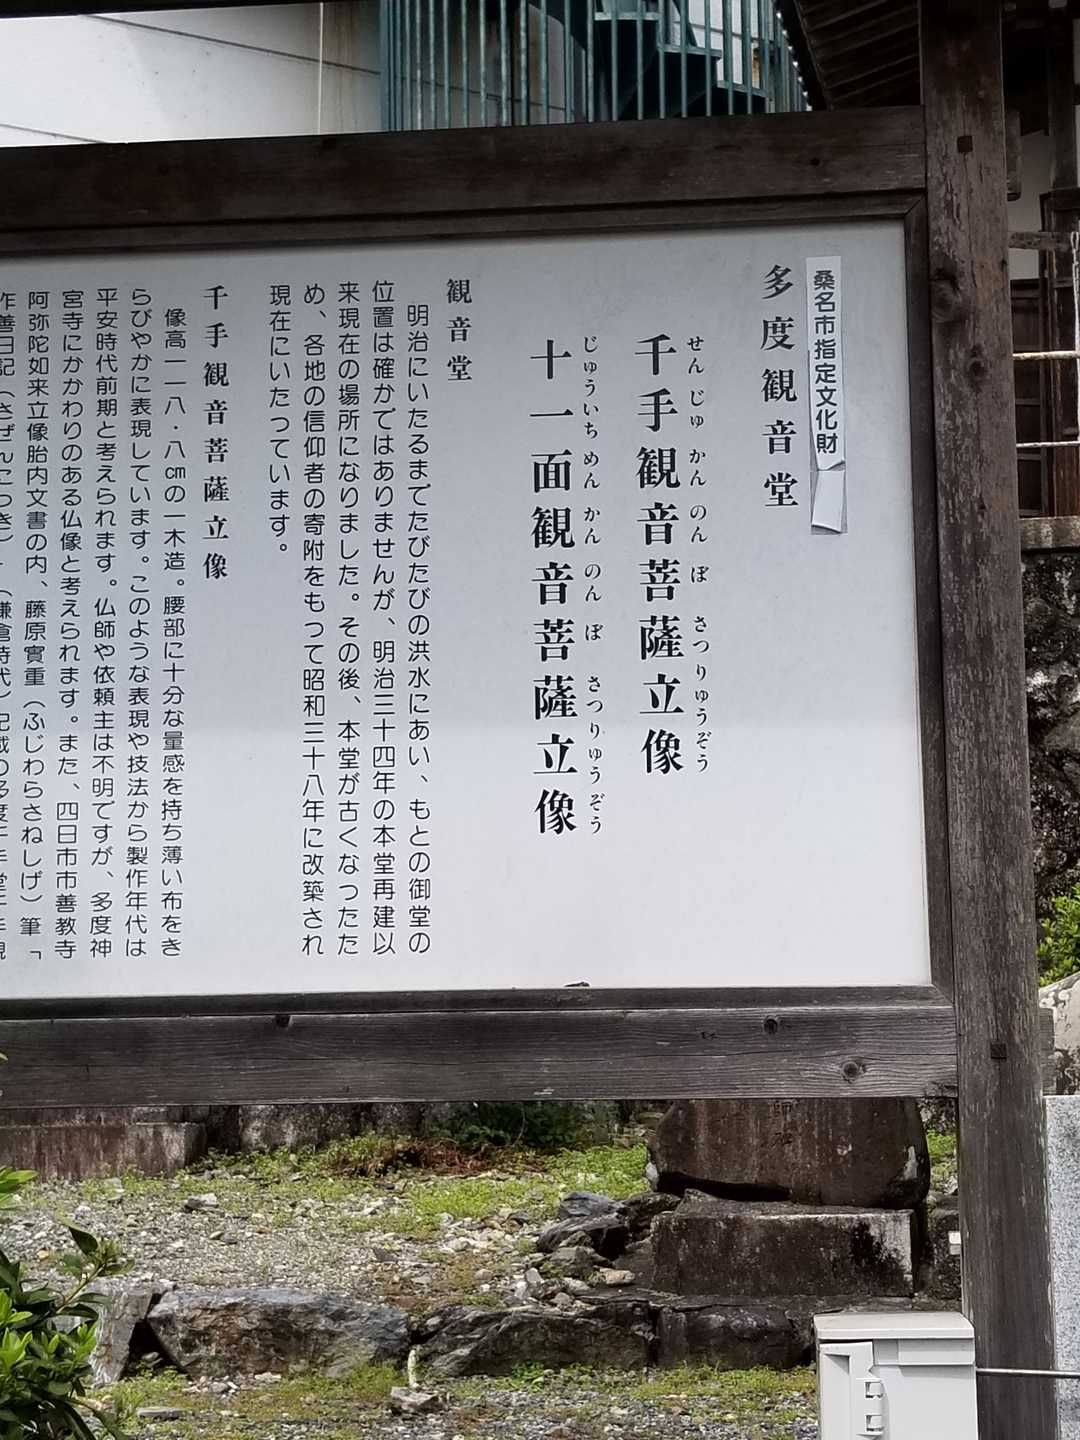 桑名市指定文化財
多度観音堂
せんじゅかんのんぼさつりゅうぞう
千手観音菩薩立像
じゅういちめんかんのんぼさつりゅうぞう
十一面観音菩薩立像
観音堂
明治にいたるまでたびたびの洪水にあい、もとの御堂の
位置は確かではありませんが、明治三十四年の本堂再建以
来現在の場所になりました。その後、本堂が古くなったた
め、各地の信仰者の寄附をもって昭和三十八年に改築され
現在にいたっています。
千手観音菩薩立像
像高一一八・八㎝の一木造。腰部に十分な量感を持ち薄い布をき
らびやかに表現しています。このような表現や技法から製作年代は
平安時代前期と考えられます。仏師や依頼主は不明ですが、多度神
宮寺にかかわりのある仏像と考えられます。また、四日市市善教寺
阿弥陀如来立像胎内文書の内、藤原實重（ふじわらさねしげ）筆「
作善日記（さぜんにっき）」（鎌倉時代）記載の多度千手堂千手観